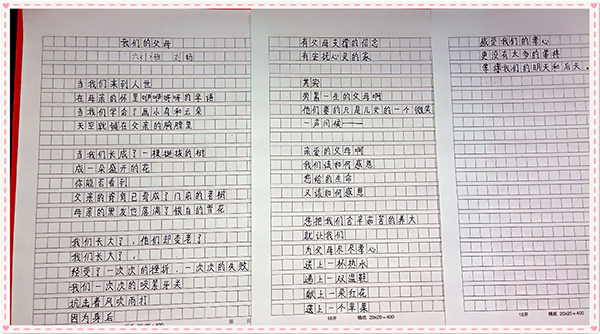 我们的父母
当我们来到人世
在母亲的怀里咿咿呀呀的学语
当我们学会了画小鸟和云朵
天空就铺在父亲的胸膛里
当我们长成了一棵挺拔的树
成一朵盛开的花
你能否看到
父亲的脊背已弯成了门前的老树
母亲的黑发也落满了银白的雪花
我们长大了,他们却变老了
我们长大了,
经受了一次次的挫折,一次次的失败
我们一次次的咬紧牙关
抗击着风吹雨打
因为身后
有父母支撑的信念
有安抚心灵的家
其实
劳累一生的父母啊
他们要的只是儿女的一个微笑
一声问候——
亲爱的父母啊
我们该如何感恩
您给的生命
又该如何感恩
您把我们含辛茹苦的养大
就让我们
为父母尽尽孝心
递上一杯热水
递上一双温鞋
献上一朵红花
递上一个苹果
16开 稿纸 20×20=400
感受我们的孝心
更没有太多的等待
等待我们的明天和后天。
16开 稿纸 20×20=400